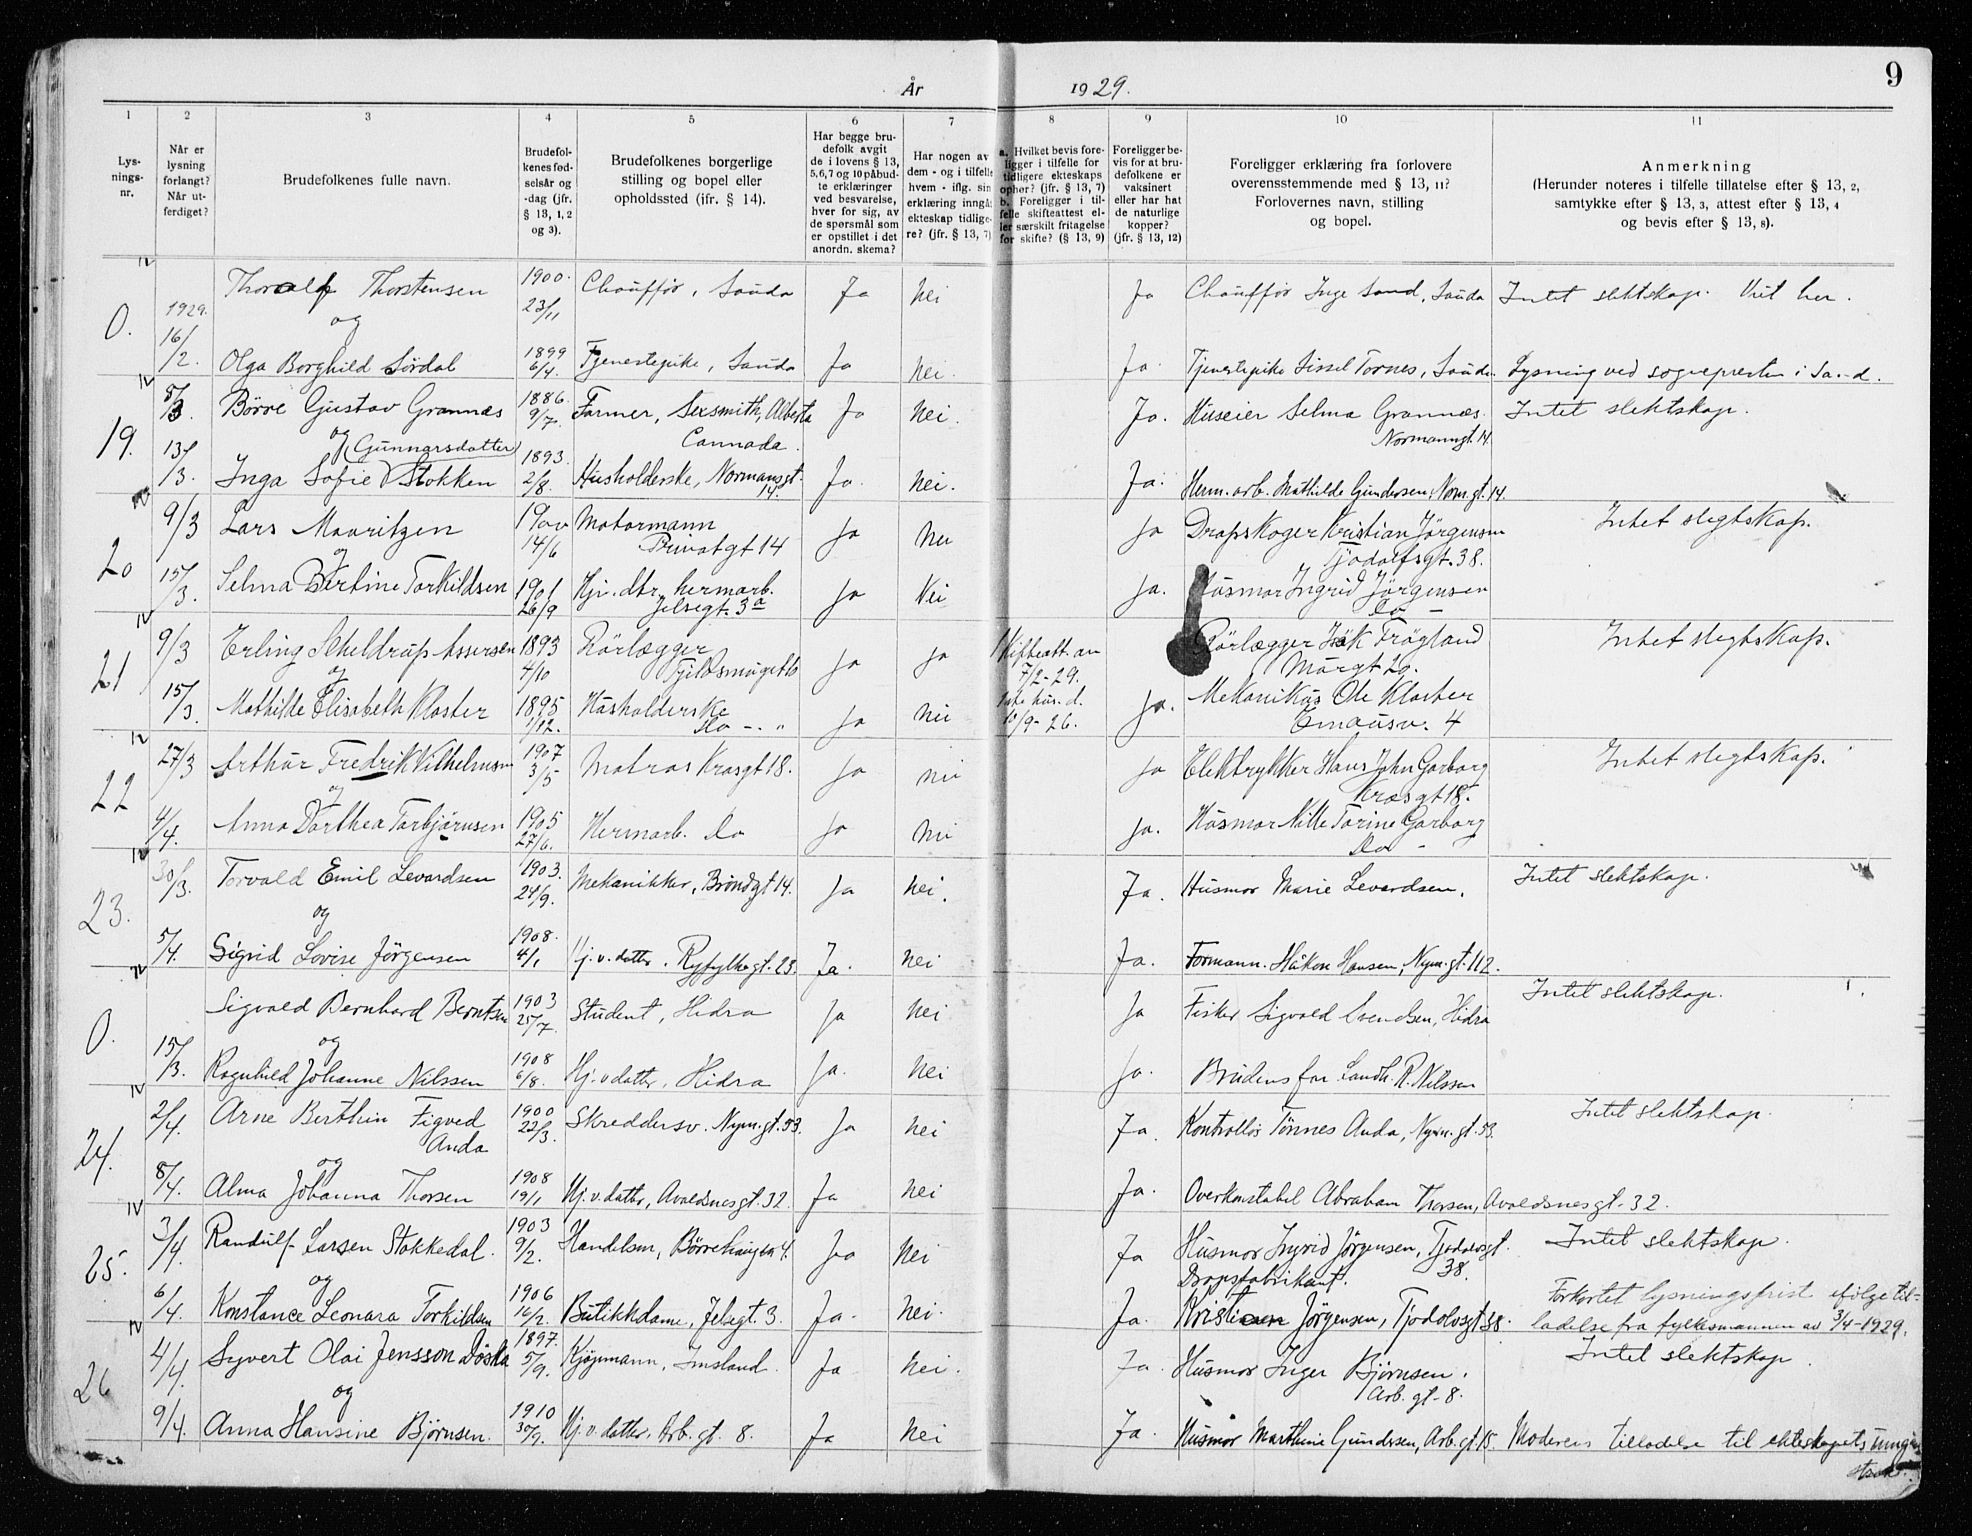 År 1929.
9
1 2 3 4 5 6 7 8 9 10 11
Lys-
nings-
nr.
Når er
lysning
forlangt?
Når ut-
ferdiget?
Brudefolkenes fulle navn.
Brudefol-
kenes fød-
selsår og
-dag (jfr.
§ 13, 1, 2
og 3).
Brudefolkenes borgerlige
stilling og bopel eller
opholdssted (jfr. § 14).
Har begge bru-
defolk avgit
de i lovens § 13,
5,6,7 og 10 påbud-
te erklæringer
ved besvarelse,
hver for sig, av
de spørsmål som
er opstillet i det
anordn. skema?
Har nogen av
dem - og i tilfelle
hvem - iflg. sin
erklæring inngått
ekteskap tidlige-
re? (jfr. § 13, 7)
a. Hvilket bevis fore-
ligger i tilfelle for
tidligere ekteskaps
ophør? (jfr. § 13, 7)
b. Foreligger i til-
felle skifteattest el-
ler særskilt fritagelse
for skifte? (§ 13, 9)
Foreligger be-
vis for at bru-
defolkene er
vaksinert
eller har hat
de naturlige
kopper?
(jfr. § 13, 12)
Foreligger erklæring fra forlovere
overensstemmende med § 13, 11?
Forlovernes navn, stilling
og bopel.
Anmerkning
(Herunder noteres i tilfelle tillatelse efter § 13, 2,
samtykke efter § 13, 3, attest efter § 13, 4
og bevis efter § 13, 8).
0. 1929. 16/2. Thoralf Thorstensen 1900. 23/11 Chauffør, Sauda Ja Nei Ja Chauffør Inge Sand, Sauda Intet slektskap. Viet her.
og
Olga Borghild Sørdal 1899 6/4. Tjenestepike, Sauda Ja Nei. Ja. Tjenestepike Sissel Tornes, Sauda. Lysning ved sognepresten i Sand.
19. 5/3 Børre Gustav Grannæs 1886. 9/7. Farmer, Sexsmith, Alberta Ja Nei. Ja. Huseier Selma Grannæs. Intet slektskap.
Cannada. Normannsgt. 14.
og (Gunnarsdatter)
13/3. Inga Sofie Stokken 1893. 2/8. Husholderske, Normansgt. 14. Ja. Nei. Ja. Herm. arb. Mathilde Gundersen, Norm.gt. 14.
20 9/3 Lars Mauritzen 14/6 Motormann Ja Nei Ja Dropskoger Kristian Jørgensen Intet slegtskap.
Privatgt 14 Tjodolfsgt. 38.
og
15/3. Selma Bertine Torkildsen 1901 26/9 Hj. dtr. hermarb. Ja Nei Ja. Husmor Ingrid Jørgensen
Jelsegt. 3a Do -
21 9/3 Erling Scheldrup Assersen 1893 4/10 Rørlægger Ja Ja Skifteatt. av Rørlægger Isak Frøgland Intet slegtskap.
7/2-29. Mårgt 20.
og
15/3. Mathilde Elisabeth Kloster 1895 1/12. Husholderske Ja Nei 10/9-26. Ja. Mekanikus Ole Kloster
Do - " Emausv. 4
22 27/3 Arthur Fredrik Vilhelmsen 1907 3/5 Matros Krosgt 18. Ja Nei Ja Elektrykker Hans John Garborg Intet slegtskap.
Krosgt 18.
og
4/4. Anna Dorthea Torbjørnsen 1905 27/6. Hermarb. Do Ja Nei Ja. Husmor Nille Torine Garborg
Do -
23. 30/3. Torvald Emil Levardsen 1903. 24/9. Mekanikker, Brøndgt 14. Ja Nei. Ja. Husmor Marie Levardsen. Intet slektskap.
og
5/4. Sigrid Lovise Jørgensen 1908. 4/1 Hj. v. datter. Ryfylkegt. 23. Ja. Nei Ja. Formann. Håkon Hansen, Nym.gt. 112.
0. Sigvald Bernhard Berntsen 1903 25/7. Student, Hidra Ja Nei Ja Fisker Sigvald Svendsen, Hidra Intet slektskap.
og
15/3. Ragnhild Johanne Nilssen 1908 6/8. Hj. v datter, Hidra Ja. Nei Ja. Brudens far Landh. R. Nilssen
24. 2/4. Arne Berthin Figved 1900 22/3. Skreddersv. Nym.gt. 53. Ja Nei Ja. Kontrollør Tønnes Anda, Nym. gt. 53. Intet slektskap.
Anda
og
8/4. Alma Johanna Thorsen 1908 19/1 Hj. v. datter, Avaldsnesgt. 32. Ja Nei Ja. Overkonstabel Abraham Thorsen, Avaldsnesgt. 32.
25. 3/4. Randulf Larsen Stokkedal. 1903 9/2. Handelsm, Børrehaugen 4. Ja Nei Ja Husmor Ingrid Jørgensen, Tjodolvsgt. 38. Intet slektskap.
og
Dropsfabrikant.
6/4. Konstance Leonara Torkildsen 1906 16/2. Butikkdame, Jelsegt. 3. Ja. Nei. Ja. Kristian Jørgensen, Tjodolvsgt 38. Forkortet lysningsfrist ifølge til-
ladelse fra fylkesmannen av 3/4-1929.
26 4/4. Syvert Olai Jensson Døske 1897. 5/9. Kjøpmann, Imsland. Ja Nei. Ja. Husmor Inger Bjørnsen. Intet slektskap.
Arb. gt. 8.
og
9/4. Anna Hansine Bjørnsen. 1910 30/9. Hj. v. datter. Arb. gt. 8. Ja Nei Ja. Husmor Marthine Gundersen, Arb. gt. 15. Moderens tilladelse til ekteskapets inngå-
else.